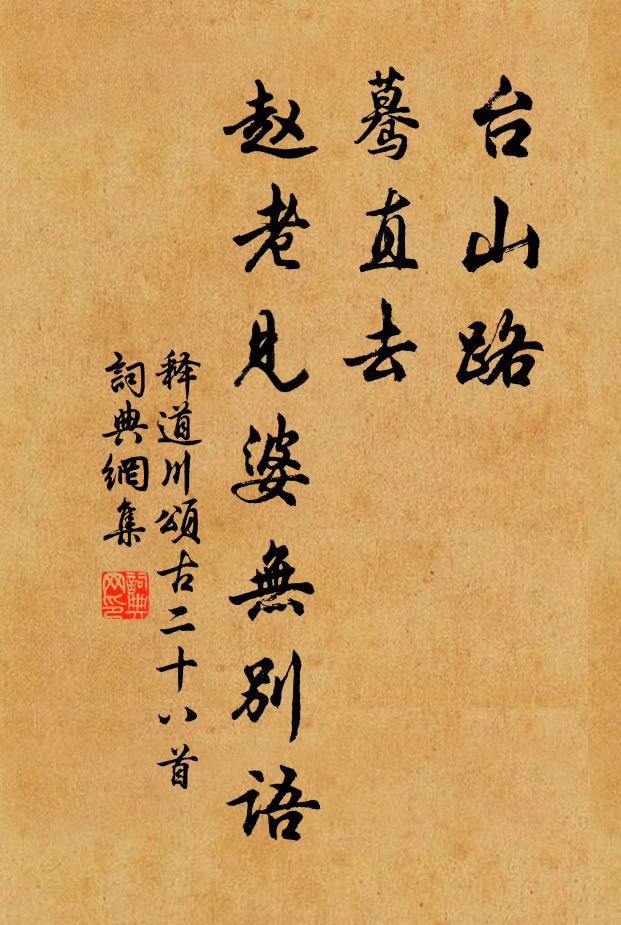 台山路
蓦直去
赵老见婆無别语
释道川頌古二十八首
詞典網集
詞典网印